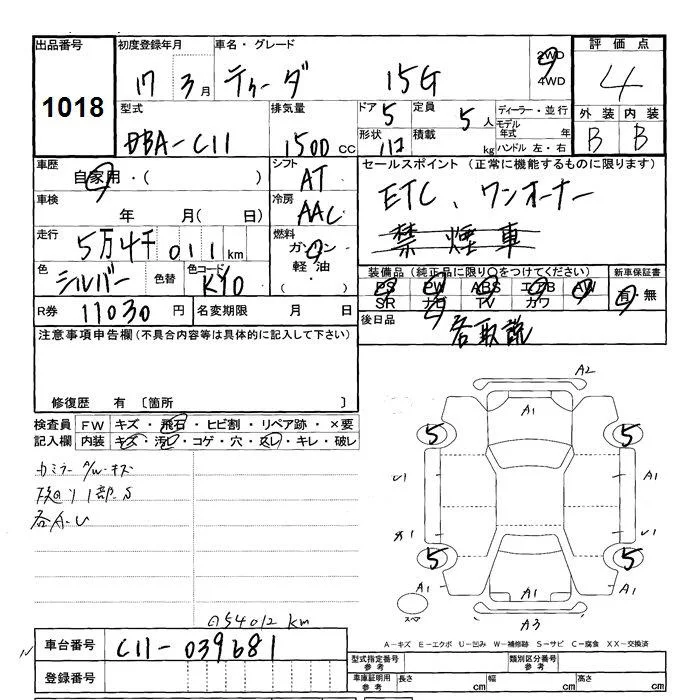 出品番号 初度登録年月 車名・グレード 評価点
1018
17 3月 ティーダ 15G 2WD 4WD 4
型式 排気量 ドア 5 定員 5人 ディーラー・並行 外装 内装
DBA-C11 1500 CC 形状 積載 kg モデル年式 年 ハンドル 左・右 B B
車歴 自家用・( ) シフト AT セールスポイント (正常に機能するものに限ります)
車検 年 月(日) 冷房 AAC ETC、ワンオーナー
走行 5万4千011km 燃料 ガソリン・軽油・( ) 禁煙車
色 シルバー 色替 色コード KY0 装備品(純正品に限り○をつけてください) 新車保証書
PS PW ABS エアB AW 有・無
SR ナビ TV カワ
R券 11030円 名変期限 月 日 後日品 各取説
注意事項申告欄(不具合内容等は具体的に記入して下さい)
修復歴 有 〔箇所
検査員記入欄 FW キズ・飛石・ヒビ割・リペア跡・×要
内装 キズ・汚れ・コゲ・穴・スレ・キレ・破レ
各A.U
A2
A1
5 5
U1 A1
U1
5 5
A1 A1 A1
スペア
A3
54012 km
A-キズ E-エクボ U-凹み W-補修跡 S-サビ C-腐食 XX-交換済
車台番号 C11-039681
登録番号
型式指定番号 参考 類別区分番号 参考
車庫証明用 参考 長さ cm 幅 cm 高さ cm